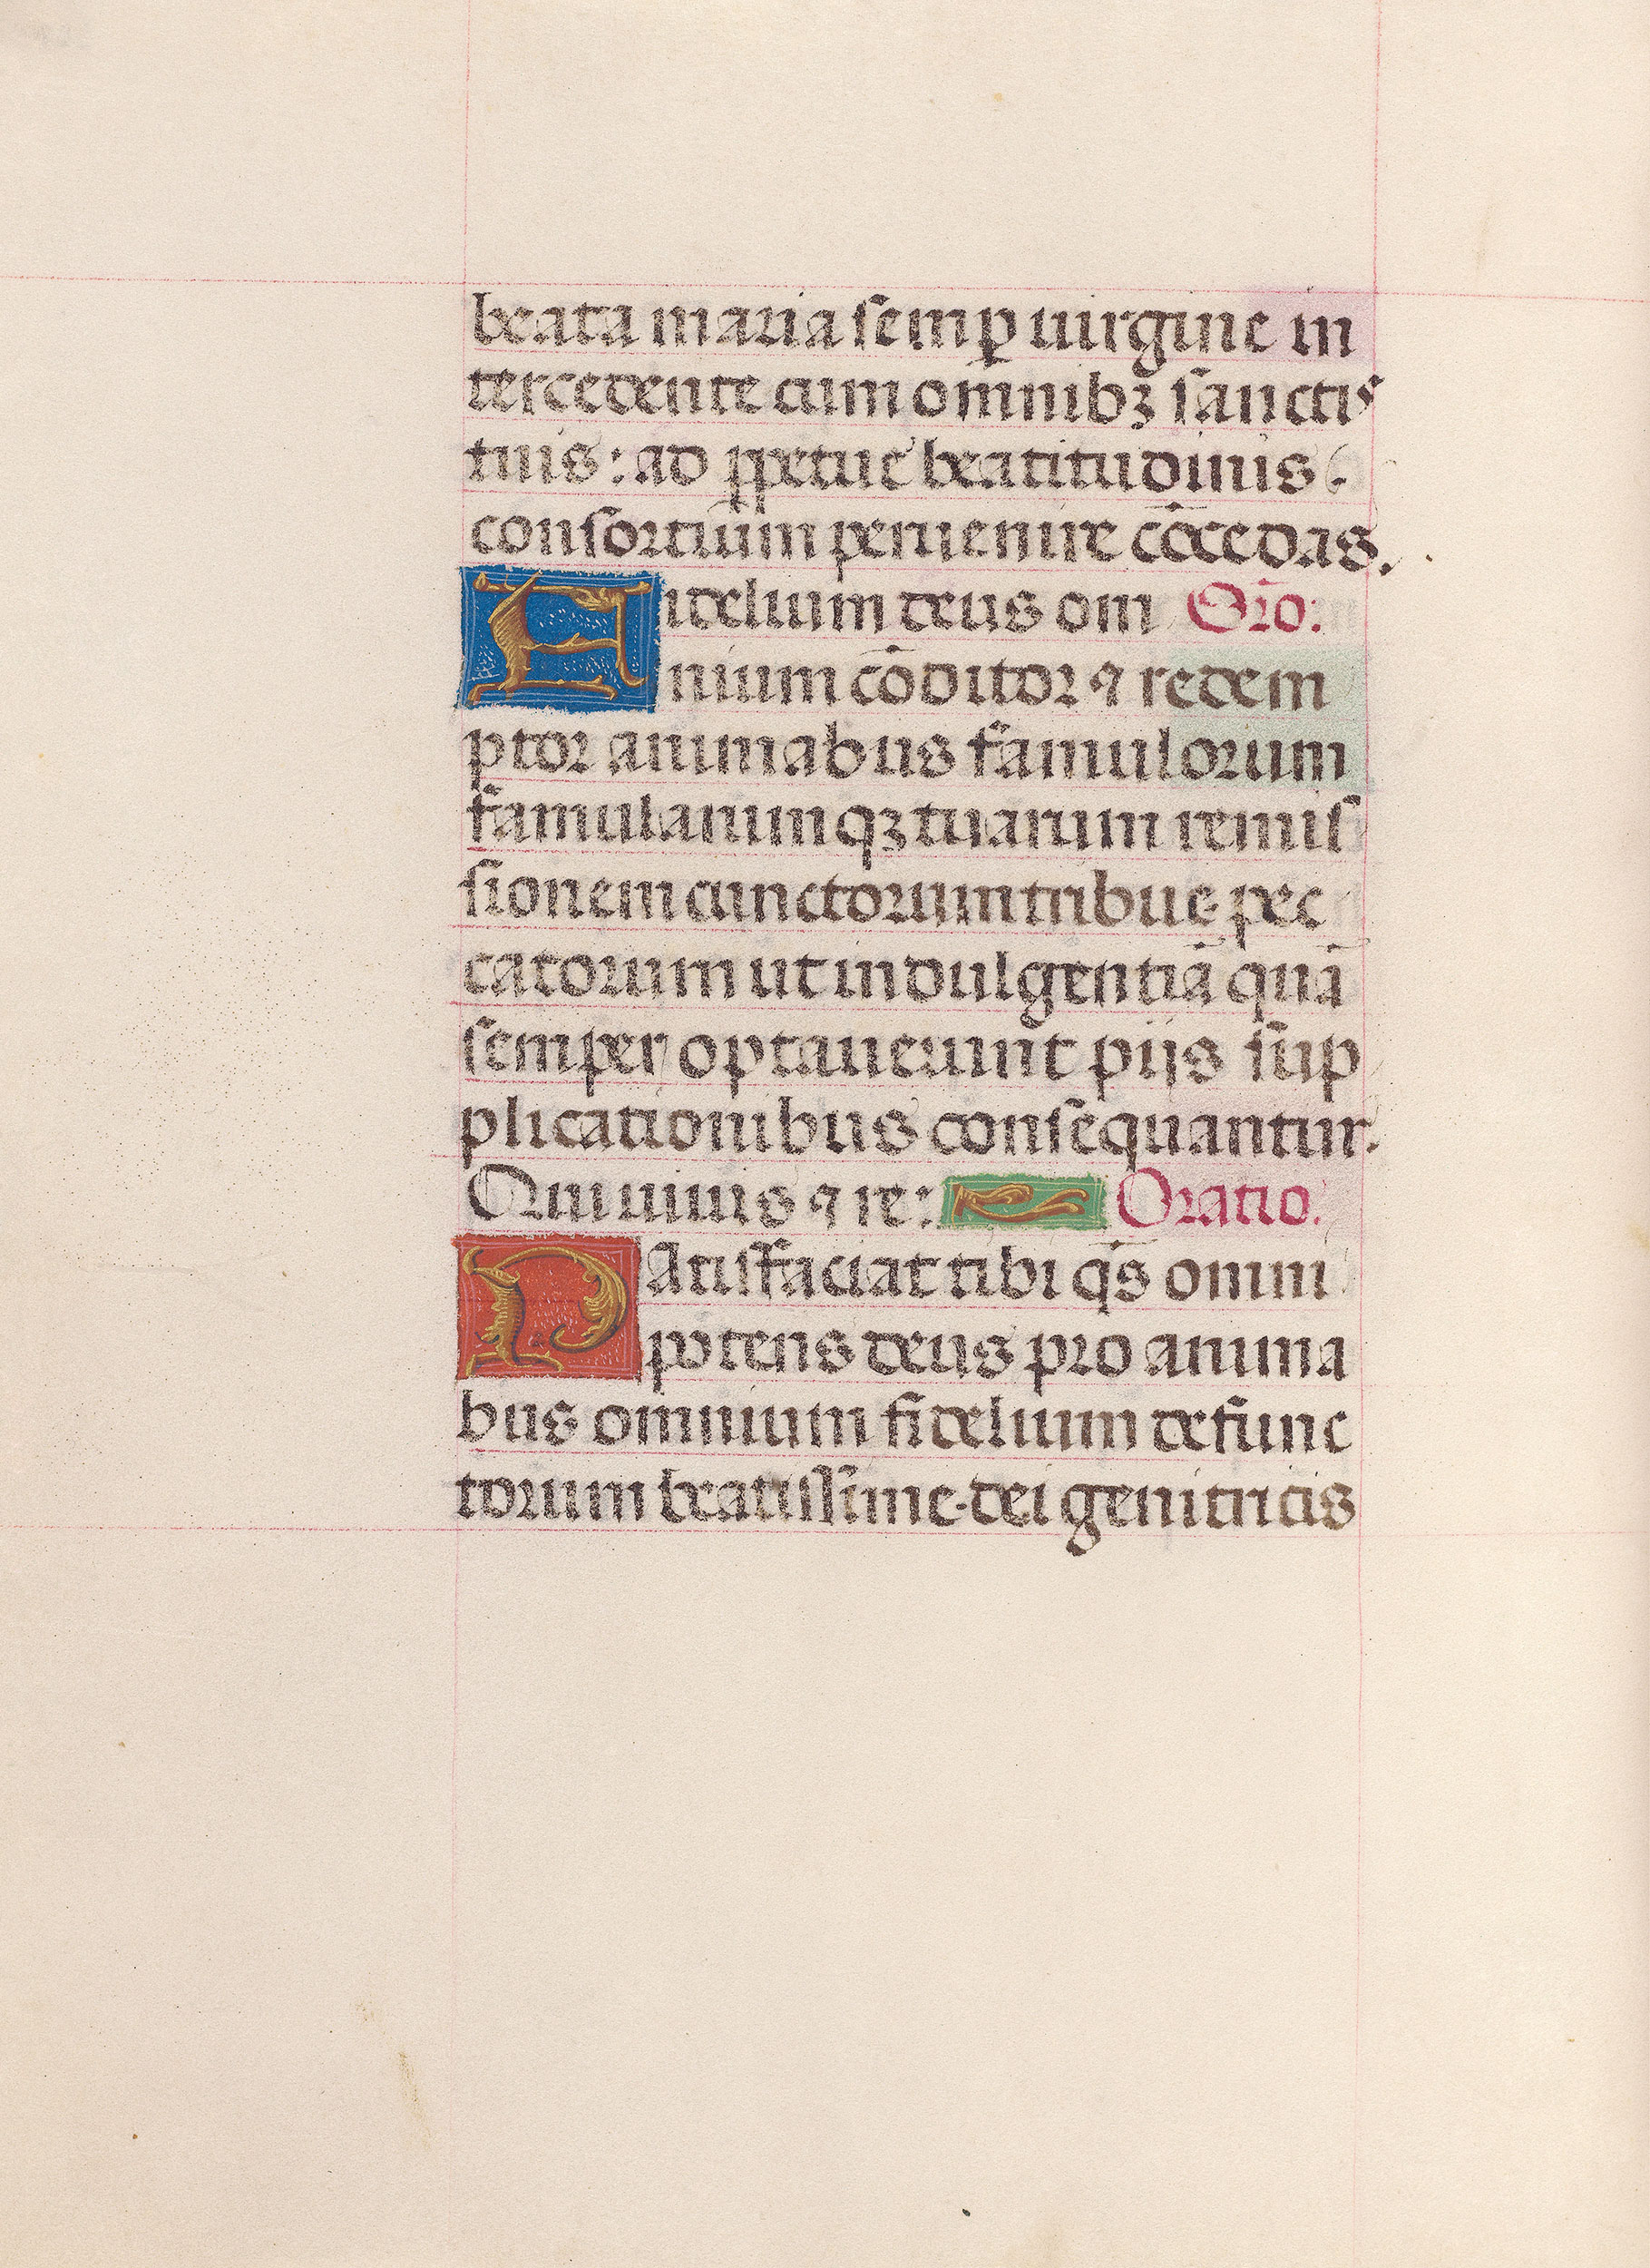 beata maria semp̱ uirgine in
tercedente cum omnibꝫ sanctis
tuis: ad ꝑpetue beatitudinis
consortium peruenire cōcedas.
Fidelium deus om Orō:
nium cōditor ⁊ redem
ptor animabus famulorum
famularumqꝫ tuarum remis
sionem cunctorum tribue pec
catorum ut indulgentiā quā
semper optauerunt pijs sup
plicationibus consequantur.
Qui uiuis ⁊ re: Oratio.
Patisfaciat tibi qs̄ omni
potens deus pro anima
bus omnium fidelium defunc
torum beatissime dei genitricis